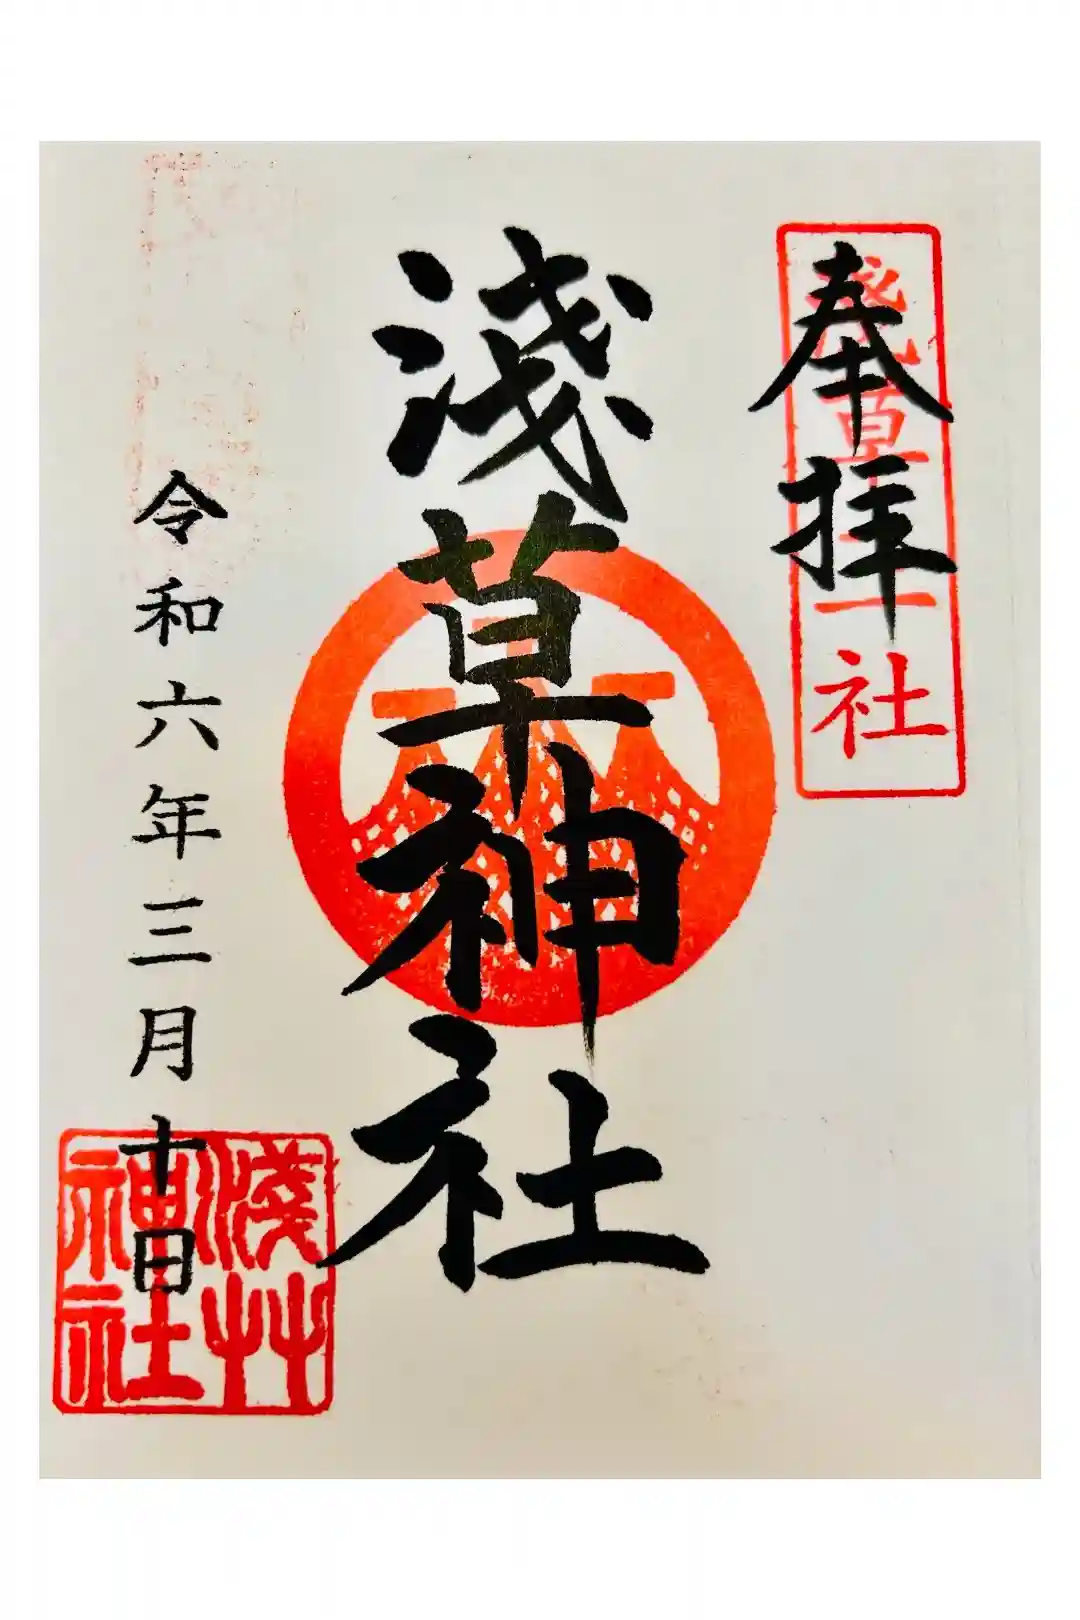 奉拝
浅草神社
令和六年三月十日
浅草
神社